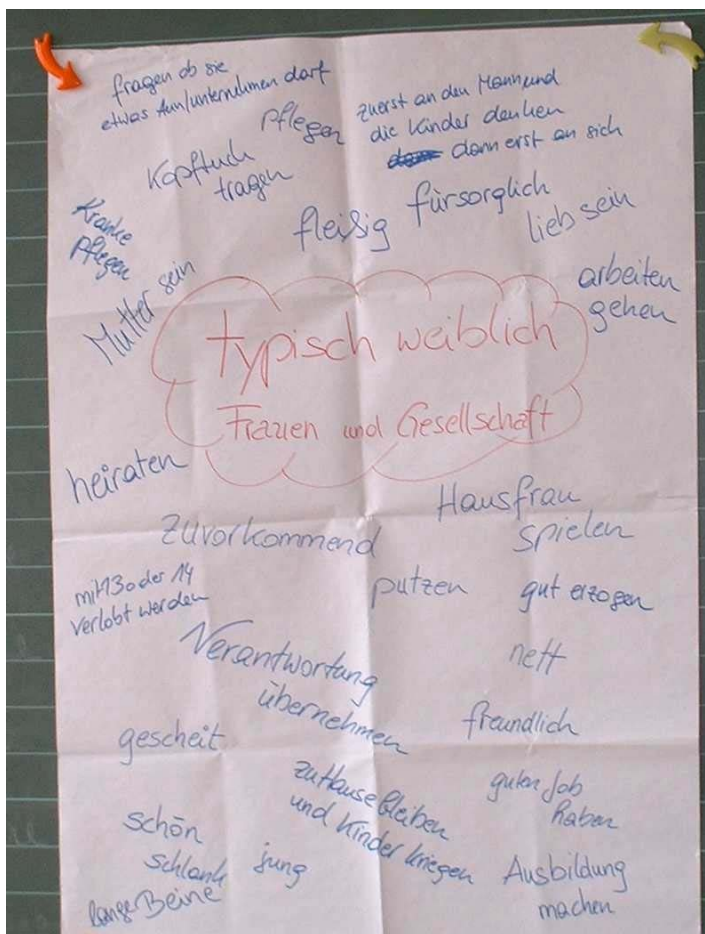 fragen ob sie
etwas tun/unternehmen darf
pflegen
zuerst an den Mann und
die Kinder denken
dann erst an sich
Kopftuch
tragen
Kranke
pflegen
fleißig
fürsorglich
lieb sein
Mutter sein
arbeiten
gehen
typisch weiblich
Frauen und Gesellschaft
heiraten
Hausfrau
spielen
zuvorkommend
mit 13 oder 14
verlobt werden
putzen
gut erzogen
Verantwortung
übernehmen
nett
gescheit
freundlich
zu Hause bleiben
und Kinder kriegen
guten Job
haben
schön
schlank
jung
lange Beine
Ausbildung
machen